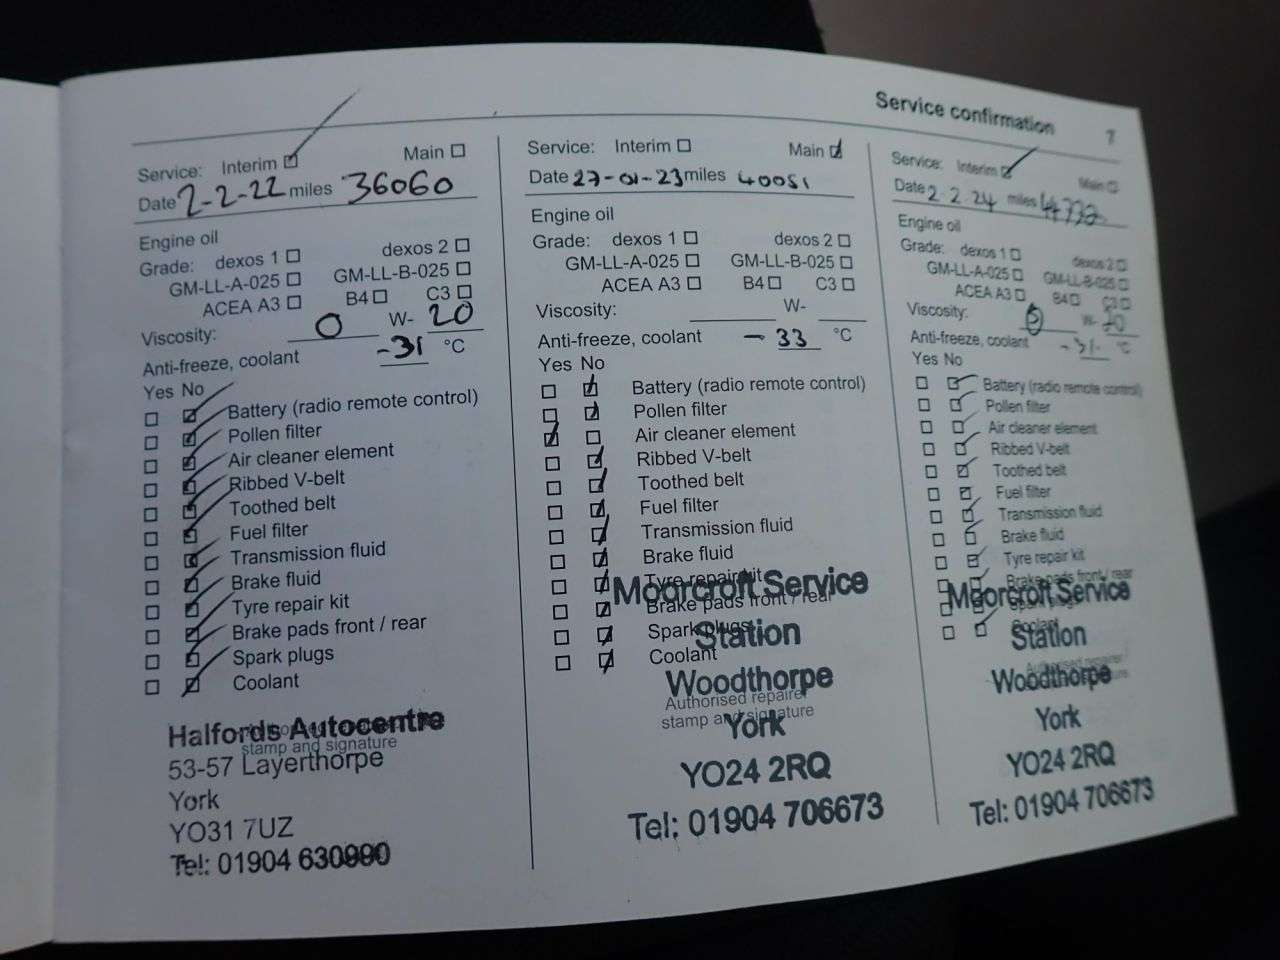 Service confirmation
Service: Interim Main
Date 2-2-22 miles 36060
Engine oil
Grade: dexos 1 dexos 2
GM-LL-A-025 GM-LL-B-025
ACEA A3 B4 C3
Viscosity: 0 W- 20
Anti-freeze, coolant -31 °C
Yes No
Battery (radio remote control)
Pollen filter
Air cleaner element
Ribbed V-belt
Toothed belt
Fuel filter
Transmission fluid
Brake fluid
Tyre repair kit
Brake pads front / rear
Spark plugs
Coolant
Halfords Autocentre
stamp and signature
53-57 Layerthorpe
York
YO31 7UZ
Tel: 01904
Service: Interim Main
Date 27-01-23 miles 40051
Engine oil
Grade: dexos 1 dexos 2
GM-LL-A-025 GM-LL-B-025
ACEA A3 B4 C3
Viscosity: W-
Anti-freeze, coolant - 33 °C
Yes No
Battery (radio remote control)
Pollen filter
Air cleaner element
Ribbed V-belt
Toothed belt
Fuel filter
Transmission fluid
Brake fluid
Tyre repair kit
Moorcroft Service
Brake pads front / rear
Spark plugs
Station
Coolant
Woodthorpe
Authorised repairer
stamp and signature
York
YO24 2RQ
Tel: 01904 706673
Service: Interim Main
Date 2.2.24 miles
Engine oil
Grade: dexos 1 dexos 2
GM-LL-A-025 GM-LL-B-025
ACEA A3 B4 C3
Viscosity: 0 W- 20
Anti-freeze, coolant -31 °C
Yes No
Battery (radio remote control)
Pollen filter
Air cleaner element
Ribbed V-belt
Toothed belt
Fuel filter
Transmission fluid
Brake fluid
Tyre repair kit
Brake pads front / rear
Moorcroft Service
Station
Coolant
Authorised repairer
Woodthorpe
York
YO24 2RQ
Tel: 01904 706673